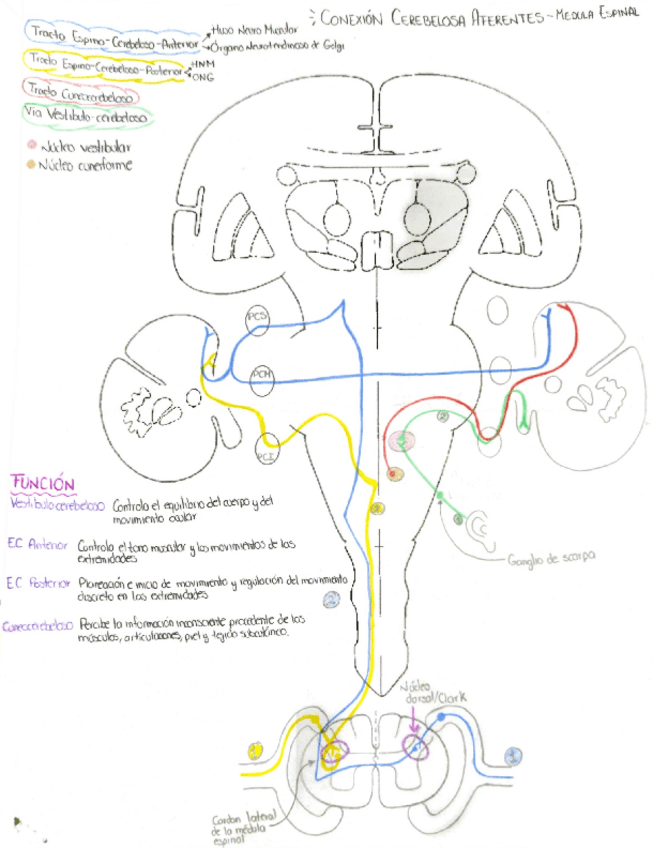 CONEXIÓN CEREBELOSA AFERENTES - MEDULA ESPINAL
Tracto Espino-Cerebeloso-Anterior
Huso Neuro Muscular
Órgano Neurotendinoso de Golgi
Tracto Espino-Cerebeloso-Posterior
HNM
ONG
Tracto Cuneocerebeloso
Vía Vestibulo-cerebeloso
Núcleo vestibular
Núcleo cuneiforme
PCS
PCM
PCI
2
1
2
Ganglio de scarpa
FUNCIÓN
Vestibulocerebeloso Controla el equilibrio del cuerpo y del
movimiento ocular
EC Anterior Controla el tono muscular y los movimientos de las
extremidades
EC Posterior Planeación e inicio de movimiento y regulación del movimiento
discreto en las extremidades
2
Cuneocerebeloso Percibe la información inconsciente procedente de los
músculos, articulaciones, piel y tejido subcutáneo.
Núcleo
dorsal/Clark
1
1
Cordon lateral
de la médula
espinal